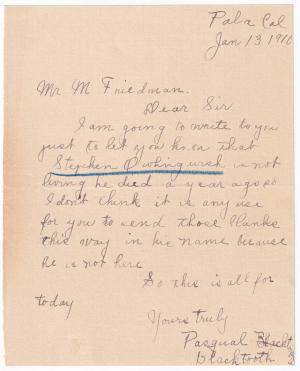 Pala Cal
Jan 13 1910
Mr M Friedman.
Dear Sir
I am going to write to you
just to let you know that
Stephen is not
living he died a year ago so
I don't think it is any use
for you to send those blanks
this way in his name because
he is not here
So this is all for
today
Yours truly
Pasqual
Blacktooth